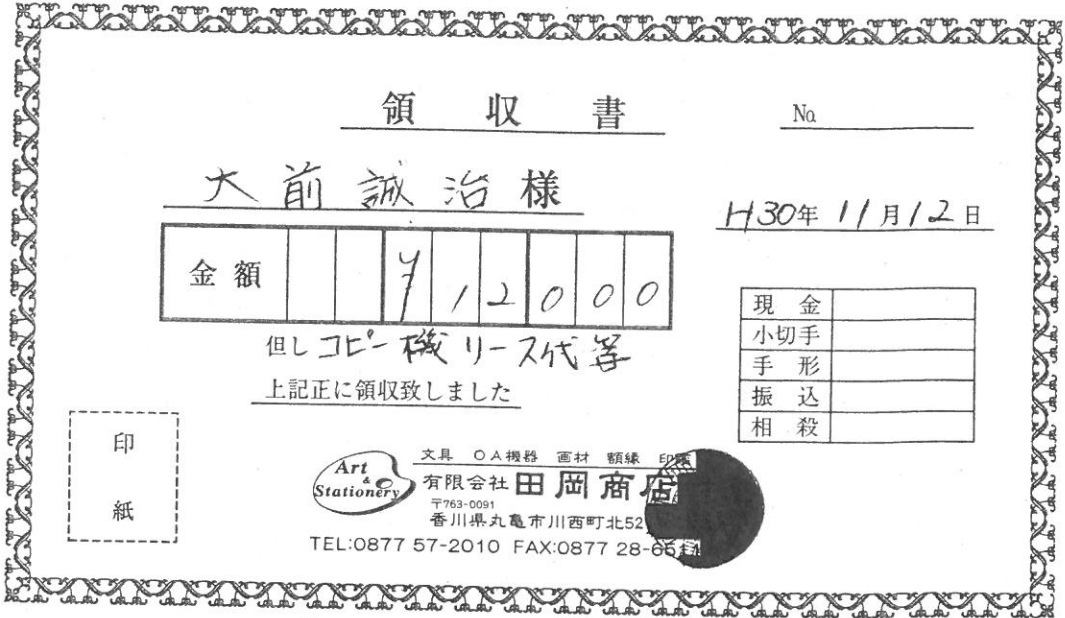 領収書
No.
大前誠治様
H30年11月12日
金額 ¥12000
但しコピー機リース代等
上記正に領収致しました
現金
小切手
手形
振込
相殺
印紙
Art & Stationery
文具 OA機器 画材 額縁
有限会社 田岡商店
〒763-0091
香川県丸亀市川西町北52
TEL:0877 57-2010 FAX:0877 28-6